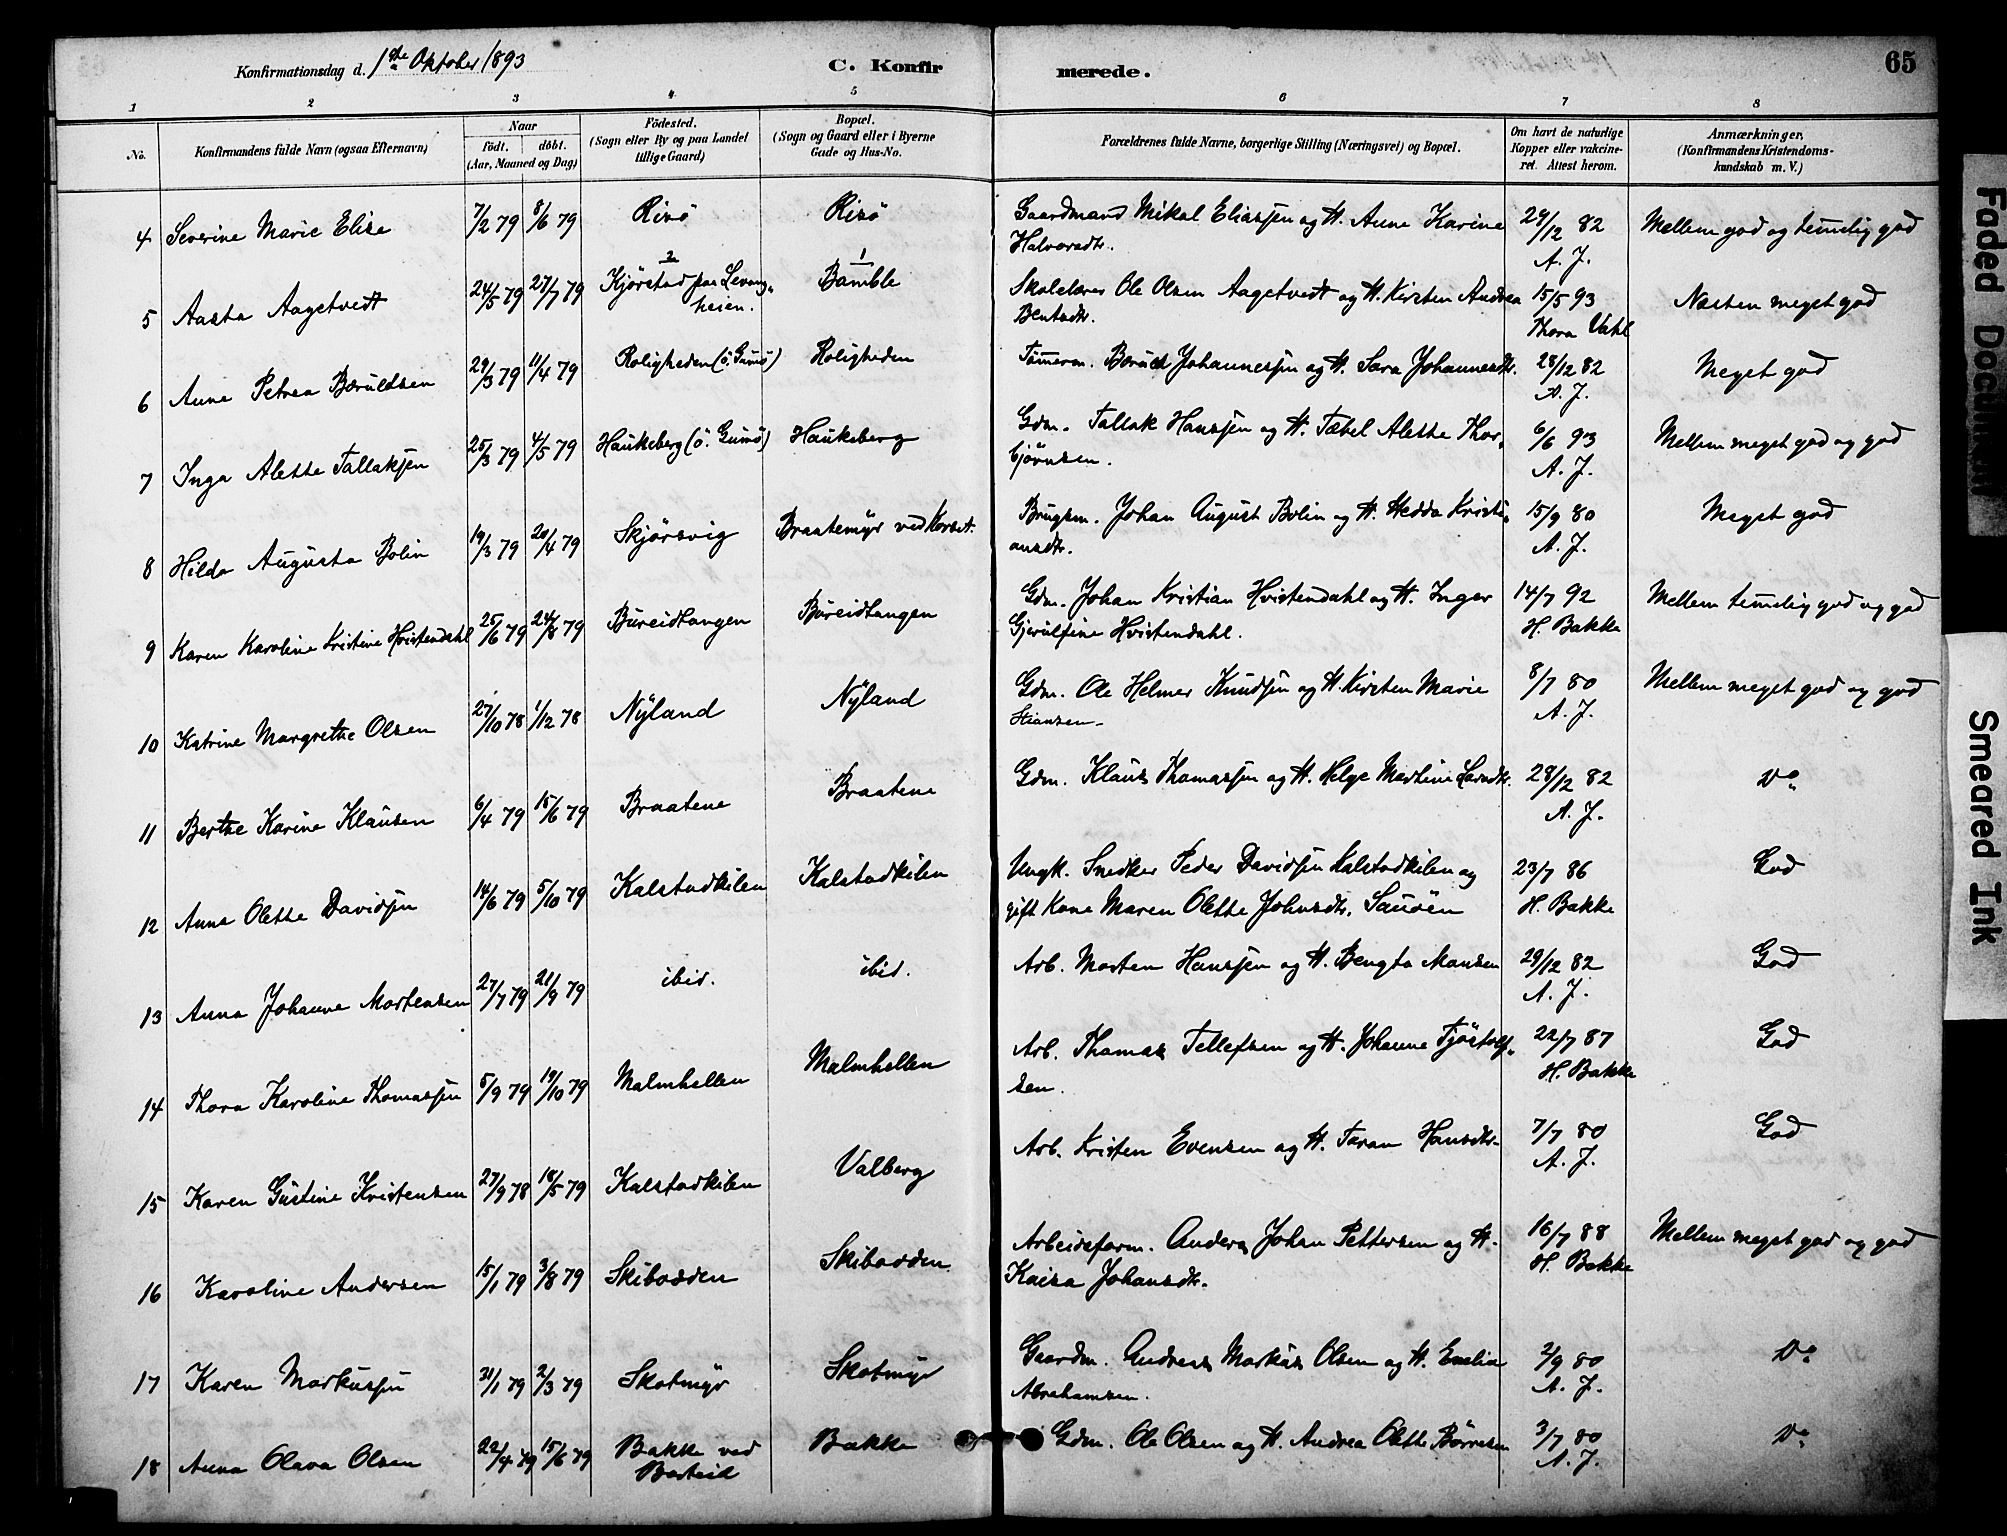 Konfirmationsdag d. 1ste Oktober 1893
C. Konfirmerede.
65
1 2 3 4 5 6 7 8
No.
Konfirmandens fulde Navn (ogsaa Efternavn)
Naar
födt. döbt.
(Aar, Maaned og Dag)
Födested.
(Sogn eller By og paa Landet
tillige Gaard)
Bopæl.
(Sogn og Gaard eller i Byerne
Gade og Hus-No.
Forældrenes fulde Navne, borgerlige Stilling (Næringsvei) og Bopæl.
Om havt de naturlige
Kopper eller vakcine-
ret. Attest herom.
Anmærkninger,
(Konfirmandens Kristendoms-
kundskab m. V.)
4 Severine Marie Elise 7/2 79 8/6 79 Risö Risö Gaardmand Mikal Eliassen og H. Anne Karine 29/12 82 Mellem god og temmelig god
Halvorsdtr. A. J.
5 Aasta Aagetvedt 24/5 79 27/7 79 2 Kjörstad paa Levang- 1 Bamble Skolelærer Ole Olsen Aagetvedt og H. Kirsten Andrea 15/5 93 Næsten meget god
heien. Bentsdtr. Thora Vahl
6 Anne Petrea Bæruldsen 29/3 79 11/4 79 Roligheden (ö. Gumö) Roligheden Tömmerm. Bæruld Johannessen og H. Sara Johannesdtr. 28/12 82 Meget god
A. J.
7 Inga Alette Tallaksen 25/3 79 4/5 79 Haukeberg (ö. Gumö) Haukeberg Gdm. Tallak Hanssen og H. Tabel Alette Thor- 6/6 93 Mellem meget god og god
björnsen. A. J.
8 Hilda Augusta Bolin 19/3 79 20/4 79 Skjörsvig Braatemyr ved Korset. Brugsm. Johan August Bolin og H. Hedda Kristi- 15/9 80 Meget god
ansdtr. A. J.
9 Karen Karoline Kristine Hvistendahl 25/6 79 24/8 79 Bureidtangen Böreidtangen Gdm. Johan Kristian Hvistendahl og H. Inger 14/7 92 Mellem temmelig god og god
Gjerulfine Hvistendahl. H. Bakke
10 Katrine Margrethe Olsen 27/10 78 1/12 78 Nyland Nyland Gdm. Ole Helmer Knudsen og H. Kirsten Marie 8/7 80 Mellem meget god og god
Stiansen. A. J.
11 Berthe Karine Klausen 6/4 79 15/6 79 Braatene Braatene Gdm. Klaus Thomassen og H. Helge Martine Larsdtr. 28/12 82 Do
A. J.
12 Anne Olette Davidsen 14/6 79 5/10 79 Kalstadkilen Kalstadkilen Ungk. Snedker Peder Davidsen Kalstadkilen og 23/7 86 God
gift Kone Maren Olette Johnsdtr. Sauöen H. Bakke
13 Anna Johanne Mortensen 27/7 79 21/9 79 ibid. ibid. Arb. Morten Hanssen og H. Bengta Monsen 29/12 82 God
A. J.
14 Thora Karoline Thomassen 5/9 79 19/10 79 Malmhellen Malmhellen Arb. Thomas Tellefsen og H. Johanne Tjöstolf- 22/7 87 God
sen. H. Bakke
15 Karen Gustine Kristensen 27/9 78 18/5 79 Kalstadkilen Valberg Arb. Kristen Evensen og H. Taran Hansdtr. 7/7 80 God
A. J.
16 Karoline Andersen 15/1 79 3/8 79 Skibodden Skibodden Arbeidsform. Anders Johan Pettersen og H. 16/7 88 Mellem meget god og god
Kaisa Johansdtr. H. Bakke
17 Karen Markussen 31/1 79 2/3 79 Skotmyr Skotmyr Gaardm. Andreas Markus Olsen og H. Emelie 2/9 80 Do
Abrahamsen. A. J.
18 Anna Olava Olsen 22/4 79 15/6 79 Bakke ved Bakke Gdm. Ole Olsen og H. Andrea Olette Börresen 3/7 80 Do
Borteid A. J.
Faded Document
Smeared Ink